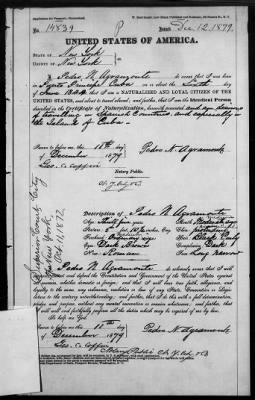 No. 14839
Issued Dec 12, 1879.
UNITED STATES OF AMERICA.
STATE OF New York
COUNTY OF New York
I Pedro N. Agramonte do swear that I was born
in Puerto Principe Cuba on the
that I am a NATURALIZED AND LOYAL CITIZEN OF THE
UNITED STATES, and about to travel abroad; and further, that I am the Identical Person
described in the Certificate of Naturalization, herewith presented and am desirous
of travelling in Spanish Countries and especially
in the Island of Cuba.
Sworn to before me this 11th day
of December 1879
Geo. C. Coffin
Pedro N. Agramonte
Notary Public.
Superior Court, City
of New York,
Oct 11, 1872
Description of Pedro N. Agramonte
Age:
Stature: 5
Eyes: Dark
Nose: Roman
Mouth:
Chin:
Hair: Black Curly
Complexion: Dark
Face: Long narrow
I, Pedro N. Agramonte do solemnly swear that I will
support, protect, and defend the Constitution and Government of the United States against
all enemies, whether domestic or foreign; and that I will bear true faith, allegiance, and
loyalty to the same, any ordinance, resolution, or law of any State, Convention, or Legis-
lature to the contrary notwithstanding; and further, that I do this with a full determination,
pledge, and purpose, without any mental reservation or evasion whatsoever; and further, that
I will well and faithfully perform all the duties which may be required of me by law.
So help me God.
Sworn to before me this 11th day
of December 1879
Geo. C. Coffin
Pedro N. Agramonte
Notary Public